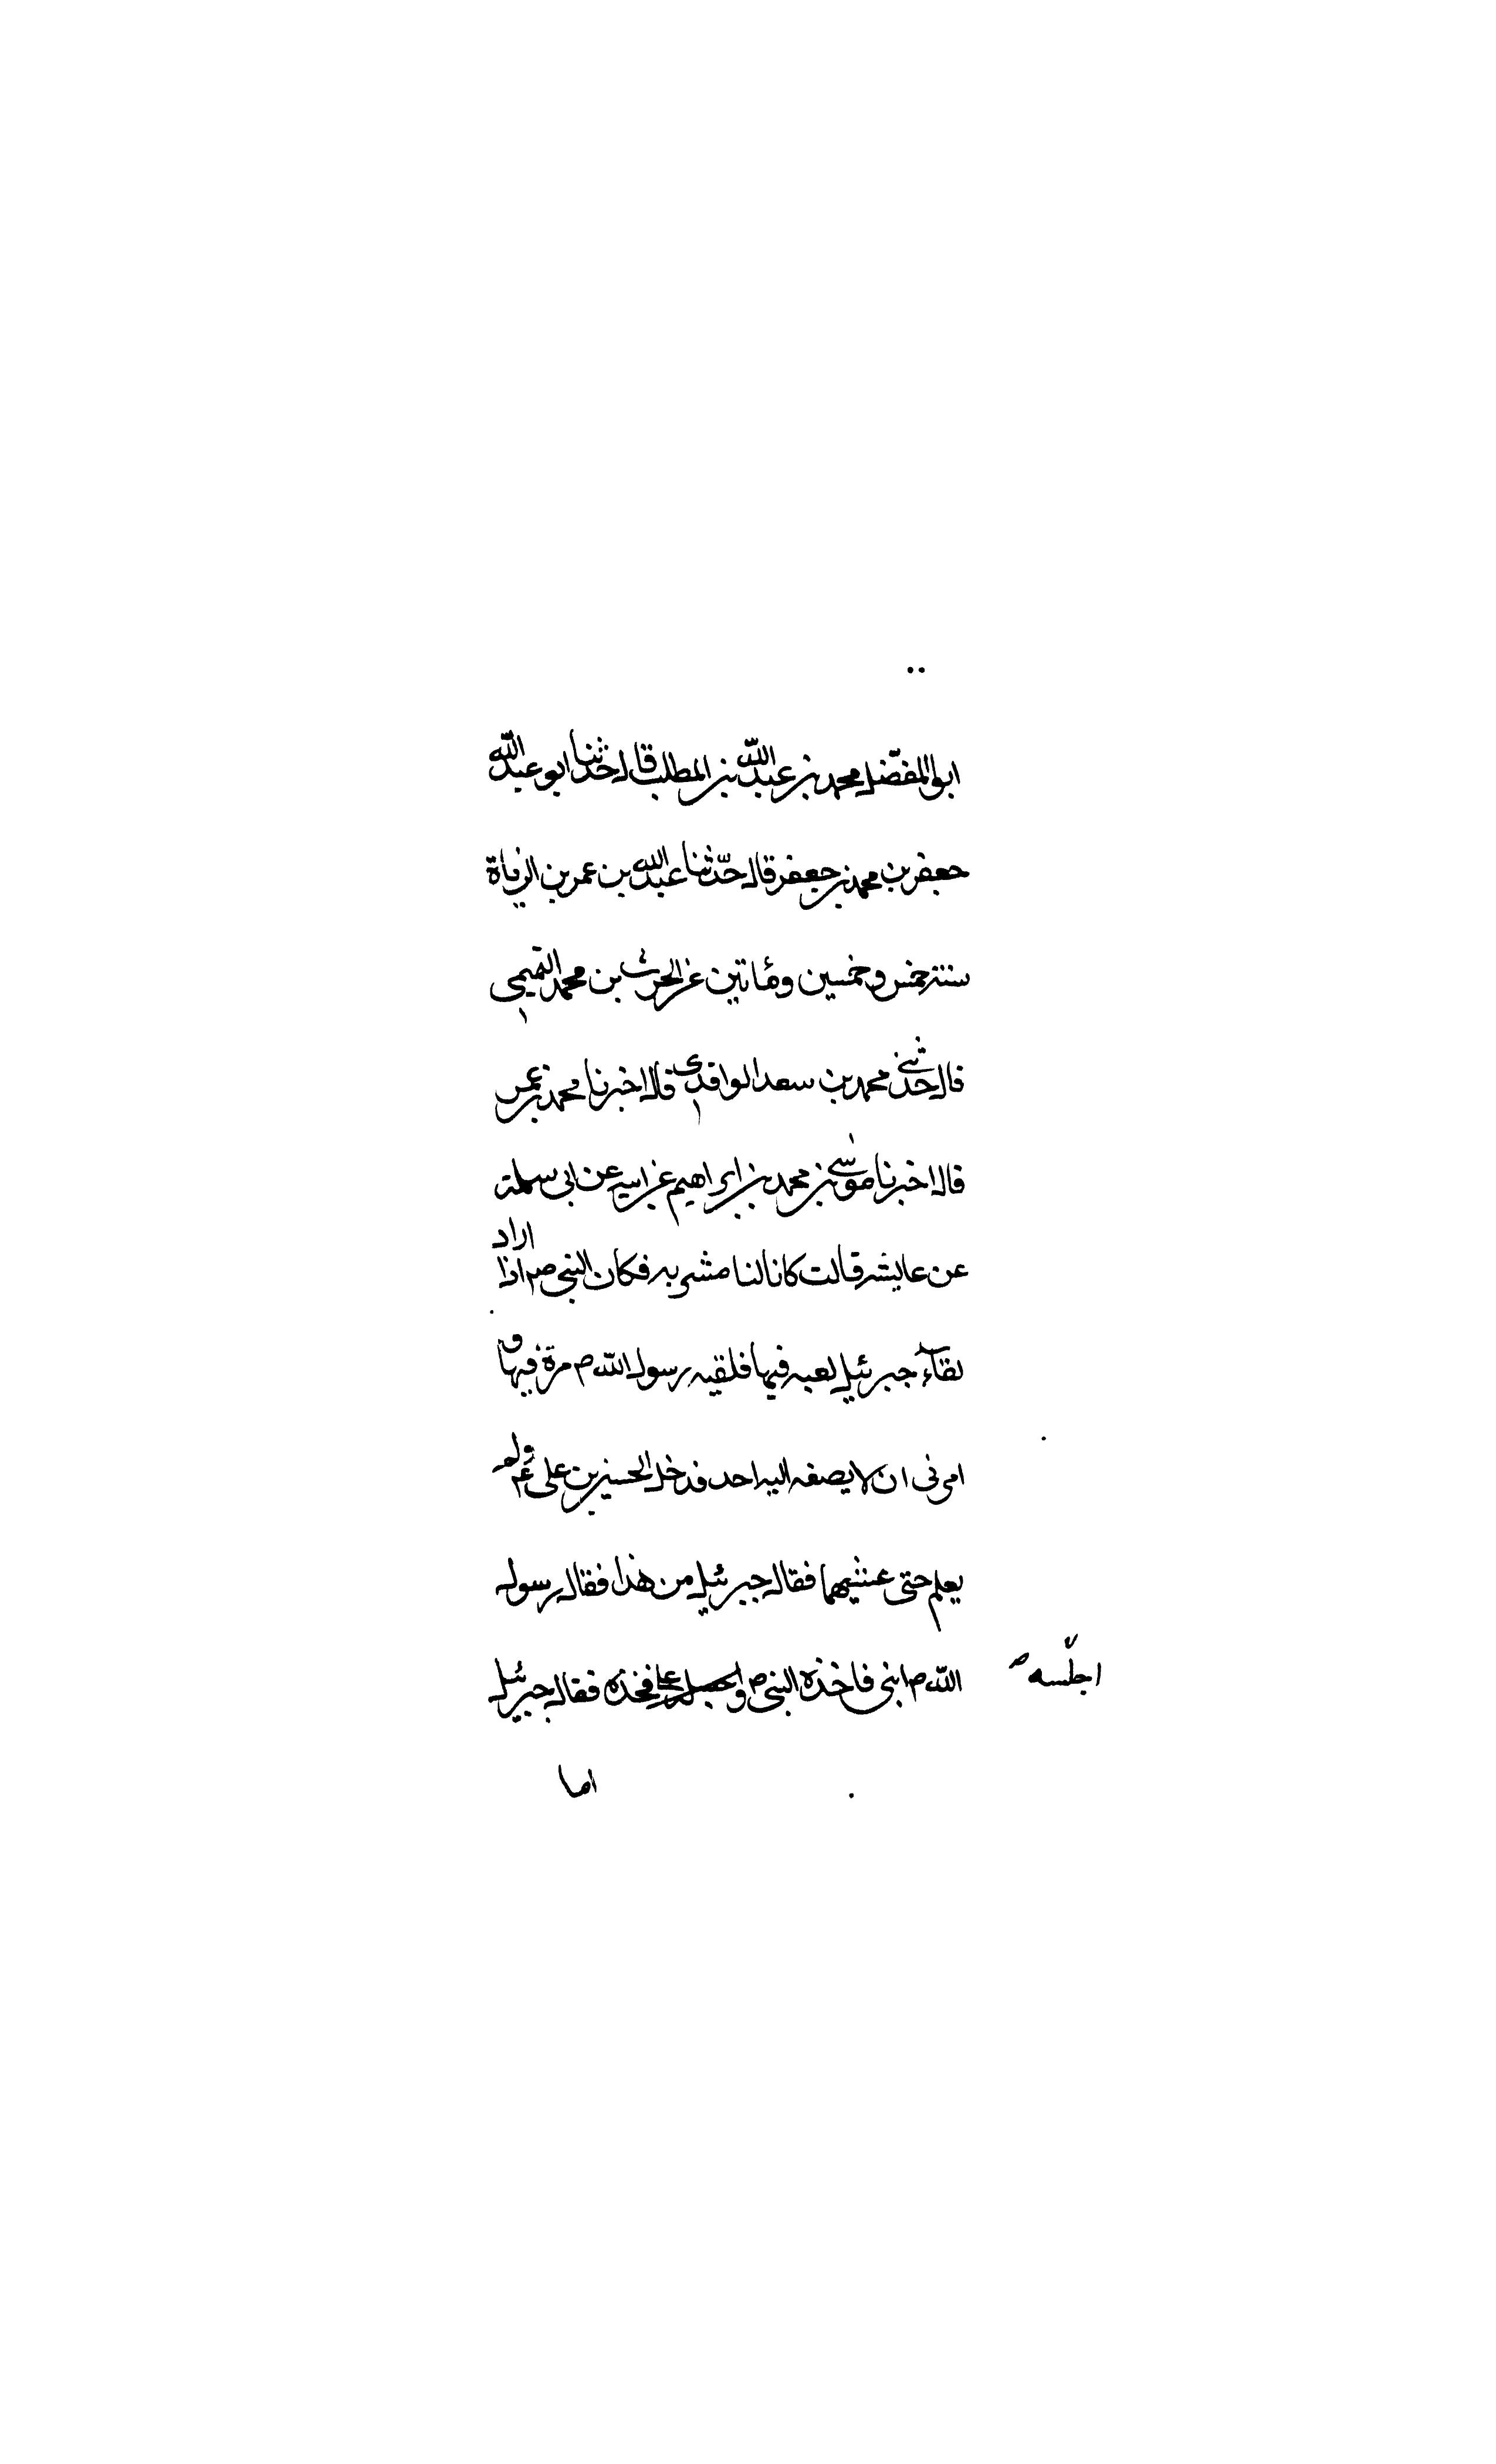 ابو المفضل محمد بن عبد الله بن المطلب قال حدثنا ابو عبد الله
جعفر بن محمد بن جعفر قال حدّثنا عبد الله بن عمر بن الزياة
سنة خمس وخمسين ومأتين عن الحرث بن محمد التميمي
قال حدثني محمد بن سعد الواقدي قال اخبرنا محمد بن عمر
قال اخبرنا موسى بن محمد بن ابراهيم عن ابيه عن ابي سلمة
عن عايشة قالت كانا لنا مشربه فكان النبي ص م اذا اراد
لقاء جبرئيل لقيه فيها فلقيه رسول الله ص مرة فيها و
امرني ان لا يصعه اليه احد فدخل الحسين بن علي ع م ولم
يعلم حتى غشيهما فقال جبرئيل من هذا فقال رسول
الله ص ابني فاخذه النبي ص و على فخذه فقال جبرئيل
اجلسه
اما